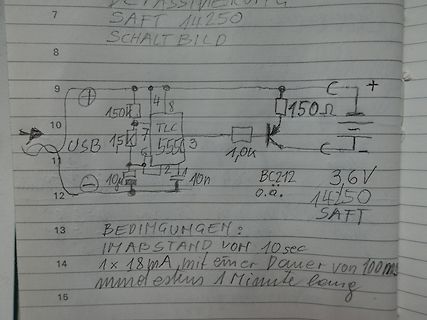 DEPASSIVIERUNG
7 SAFT 14250
SCHALTBILD
8
9 + 4 8 C +
150k 150Ω
10 TLC
USB 15k 7 555 3
11 6 2 1 1,0k C -
10µ 10n BC212 3,6V
12 - o.ä. 14250
SAFT
13 BEDINGUNGEN:
IM ABSTAND VON 10sec
14 1x 18mA, mit einer Dauer von 100ms
mindestens 1 Minute lang
15